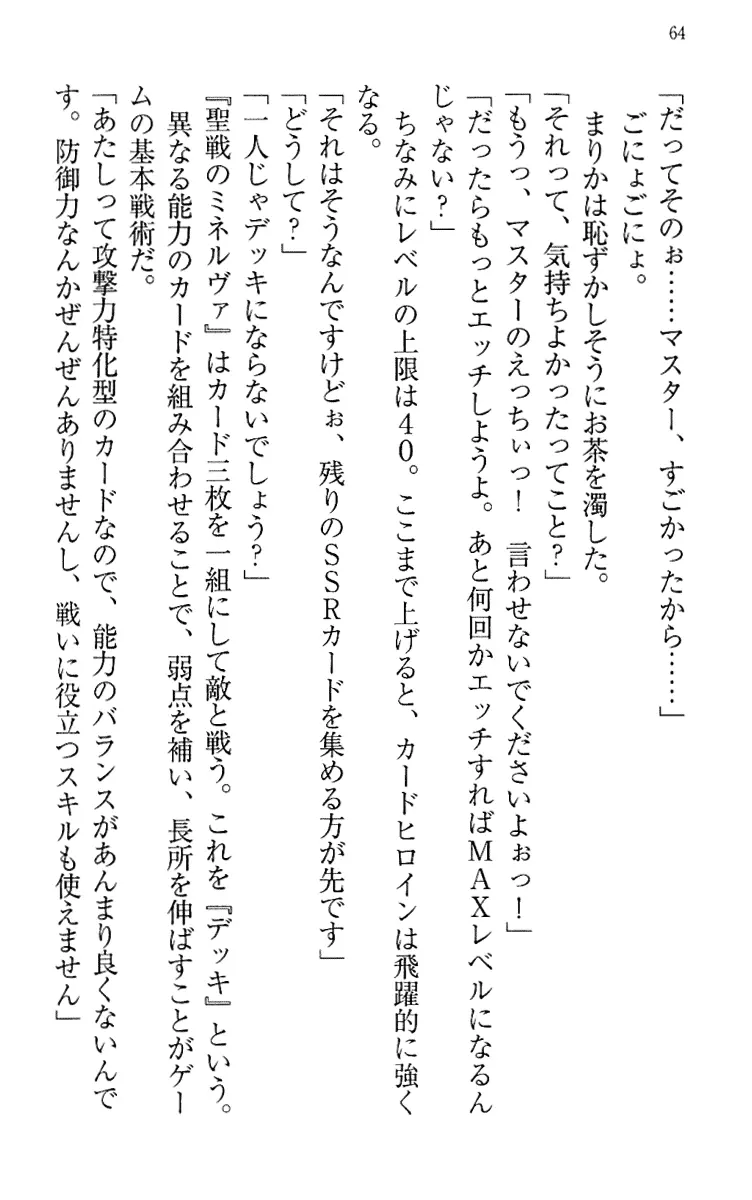 64
「だってそのぉ……マスター、すごかったから……」
ごにょごにょ。
まりかは恥ずかしそうにお茶を濁した。
「それって、気持ちよかったってこと？」
「もうっ、マスターのえっちぃっ！　言わせないでくださいよぉっ！」
「だったらもっとエッチしようよ。あと何回かエッチすればＭＡＸレベルになるん
じゃない？」
ちなみにレベルの上限は４０。ここまで上げると、カードヒロインは飛躍的に強く
なる。
「それはそうなんですけどぉ、残りのＳＳＲカードを集める方が先です」
「どうして？」
「一人じゃデッキにならないでしょう？」
『聖戦のミネルヴァ』はカード三枚を一組にして敵と戦う。これを『デッキ』という。
異なる能力のカードを組み合わせることで、弱点を補い、長所を伸ばすことがゲー
ムの基本戦術だ。
「あたしって攻撃力特化型のカードなので、能力のバランスがあんまり良くないんで
す。防御力なんかぜんぜんありませんし、戦いに役立つスキルも使えません」